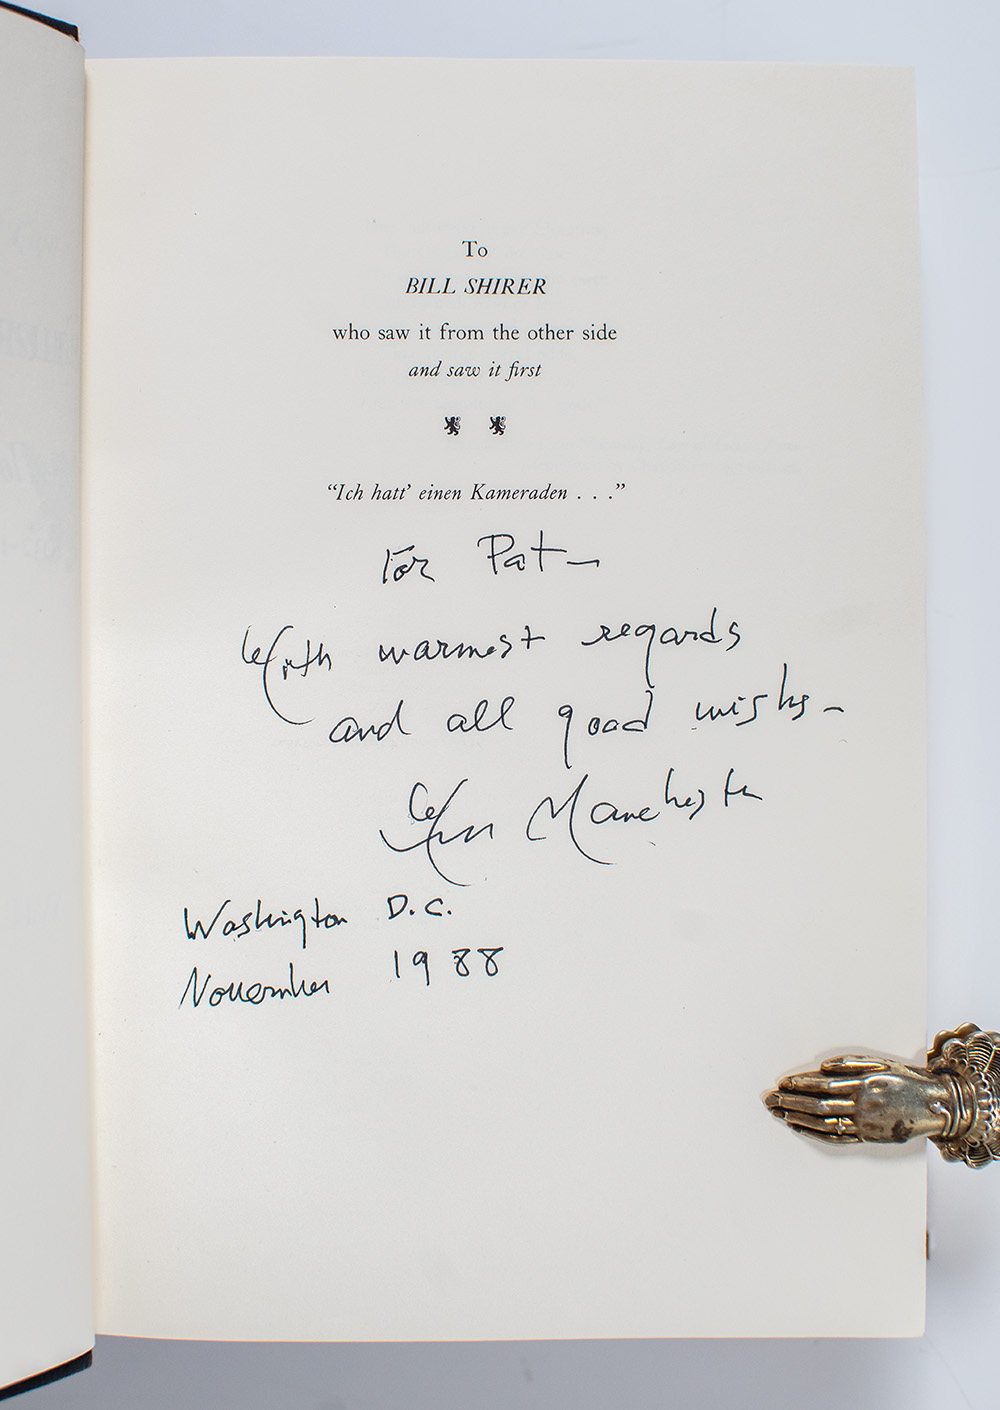 To
BILL SHIRER
who saw it from the other side
and saw it first
“Ich hatt’ einen Kameraden . . .”
For Pat –
With warmest regards
and all good wishes –
Wm Manchester
Washington D.C.
November 1988